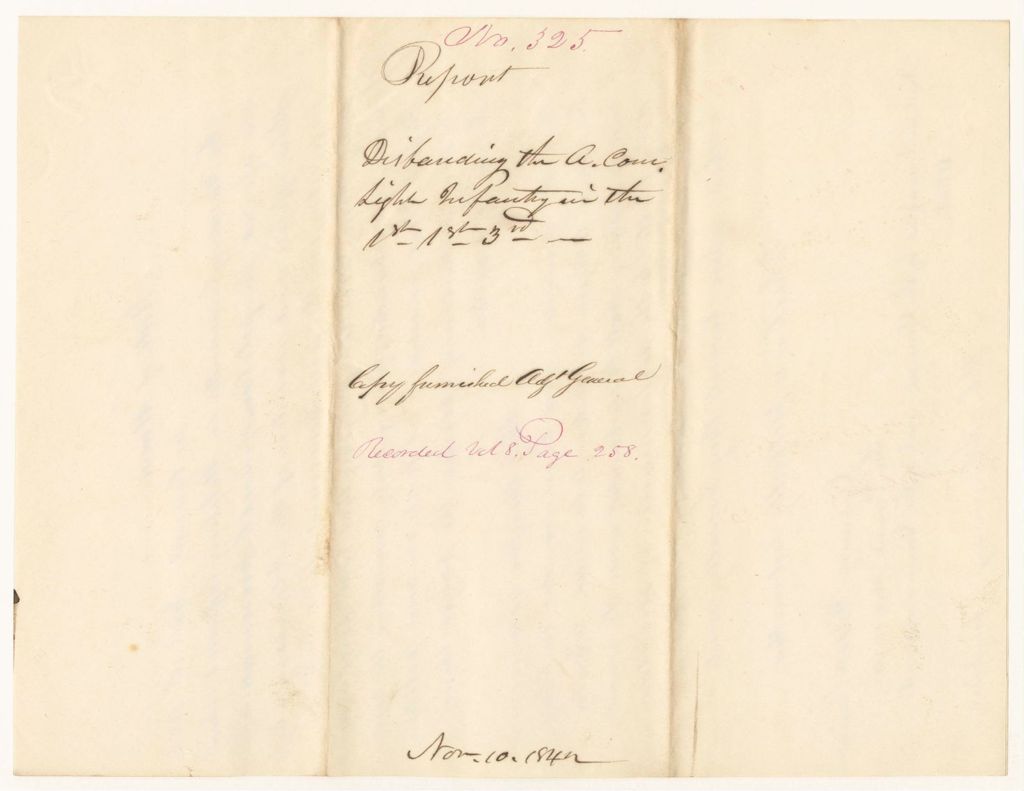 No. 325.
Report
Disbanding the A. Com.
Light Infantry in the
1st 1st 3rd —
Copy furnished Adjt General
Recorded Vol 8. Page 258.
Nov. 10. 1842